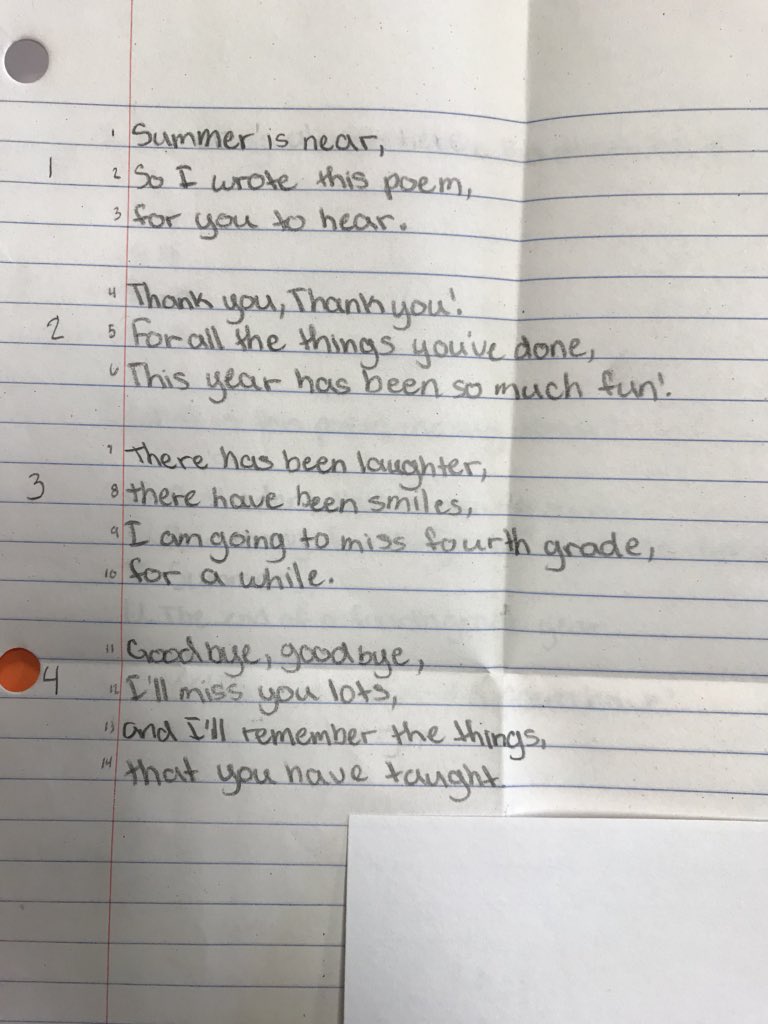 1 Summer is near,
1 2 So I wrote this poem,
3 for you to hear.
4 Thank you, Thank you!
2 5 For all the things you've done,
6 This year has been so much fun!
7 There has been laughter,
3 8 there have been smiles,
9 I am going to miss fourth grade,
10 for a while.
11 Goodbye, goodbye,
4 12 I'll miss you lots,
13 and I'll remember the things,
14 that you have taught.